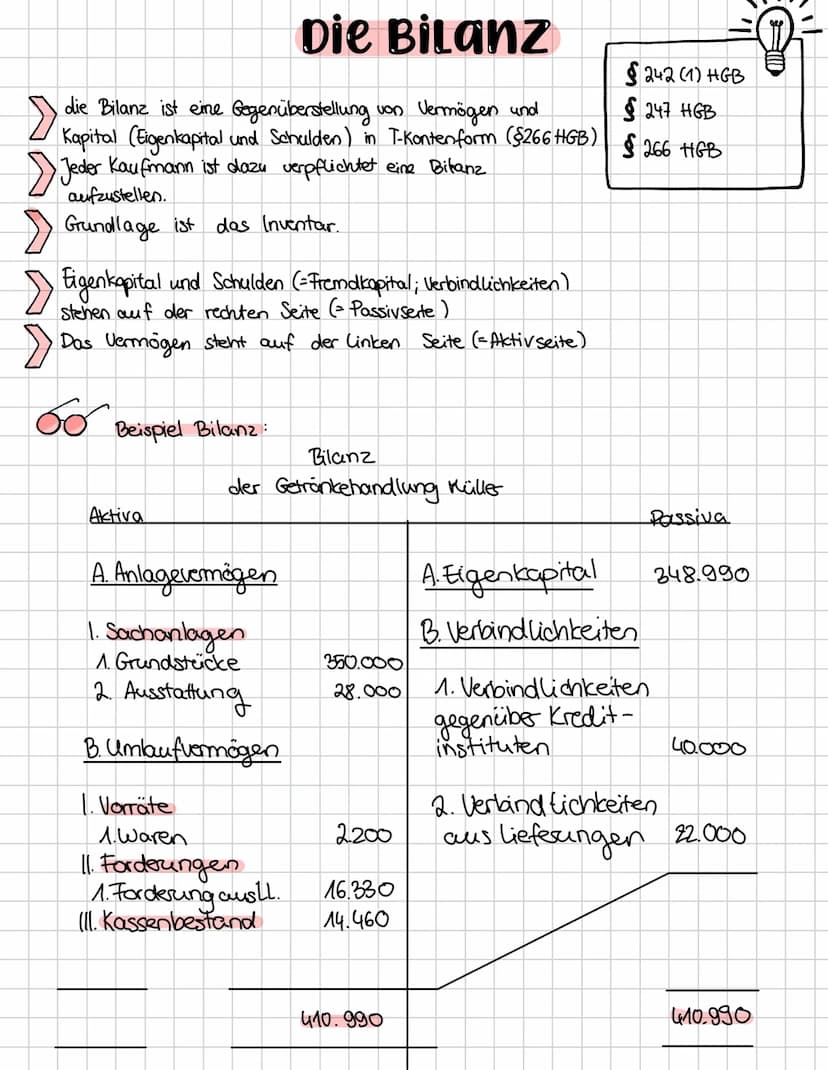 Die Bilanz
§ 242 (1) HGB
§ 247 HGB
§ 266 HGB
die Bilanz ist eine Gegenüberstellung von Vermögen und
Kapital (Eigenkapital und Schulden) in T-Kontenform (§266 HGB)
Jeder Kaufmann ist dazu verpflichtet eine Bilanz
aufzustellen.
Grundlage ist das Inventar.
Eigenkapital und Schulden (=Fremdkapital; Verbindlichkeiten)
stehen auf der rechten Seite (= Passivseite)
Das Vermögen steht auf der linken Seite (=Aktivseite)
Beispiel Bilanz:
Bilanz
der Getränkehandlung Müller
Aktiva Passiva
A. Anlagevermögen
I. Sachanlagen
1. Grundstücke 350.000
2. Ausstattung 28.000
B. Umlaufvermögen
I. Vorräte
1. Waren 2.200
II. Forderungen
1. Forderung aus LL. 16.330
III. Kassenbestand 14.460
410.990
A. Eigenkapital 348.990
B. Verbindlichkeiten
1. Verbindlichkeiten
gegenüber Kredit-
instituten 40.000
2. Verbindlichkeiten
aus Lieferungen 22.000
410.990